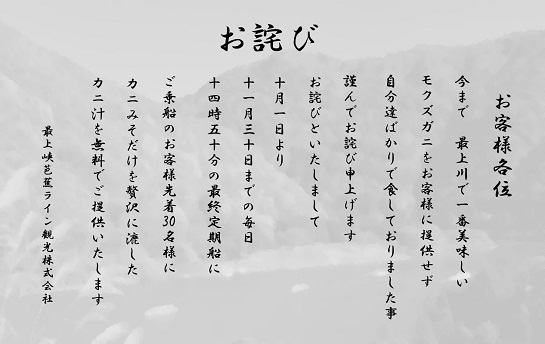 お詫び
お客様各位
今まで 最上川で一番美味しい
モクズガニをお客様に提供せず
自分達ばかりで食しておりました事
謹んでお詫び申上げます
お詫びといたしまして
十月一日より
十一月三十日までの毎日
十四時五十分の最終定期船に
ご乗船のお客様先着30名様に
カニみそだけを贅沢に漉した
カニ汁を無料でご提供いたします
最上峡芭蕉ライン観光株式会社